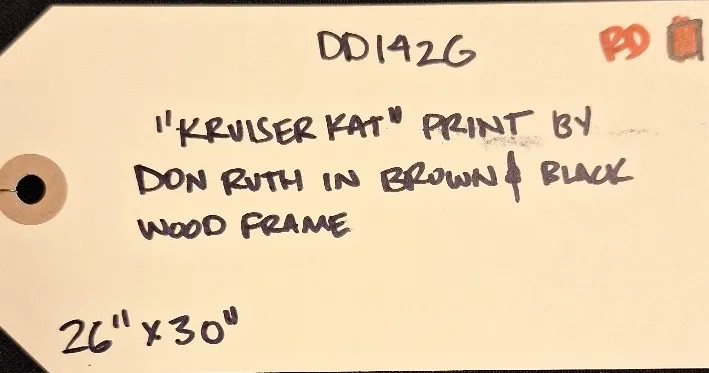 DD142G RD
"KRUISER KAT" PRINT BY
DON RUTH IN BROWN & BLACK
WOOD FRAME
26" x 30"